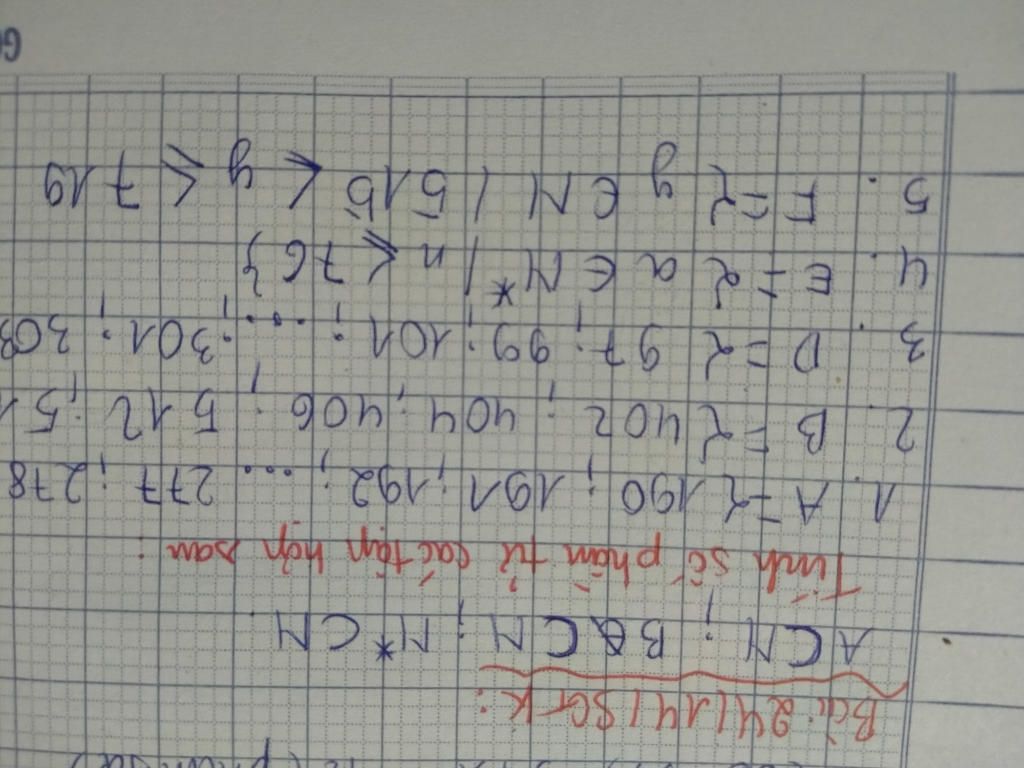 Bài 24/14/SGK:
A ⊂ N ; B ⊂ N ; N* ⊂ N
Tính số phần tử các tập hợp sau :
1. A = { 190 ; 191 ; 192 ; ... 277 ; 278
2. B = { 402 ; 404 ; 406 ; 512 ; 51
3. D = { 97 ; 99 ; 101 ; ... ; 301 ; 303
4. E = { a ∈ N* / n ≤ 76 }
5. F = { y ∈ N / 515 ≤ y ≤ 719